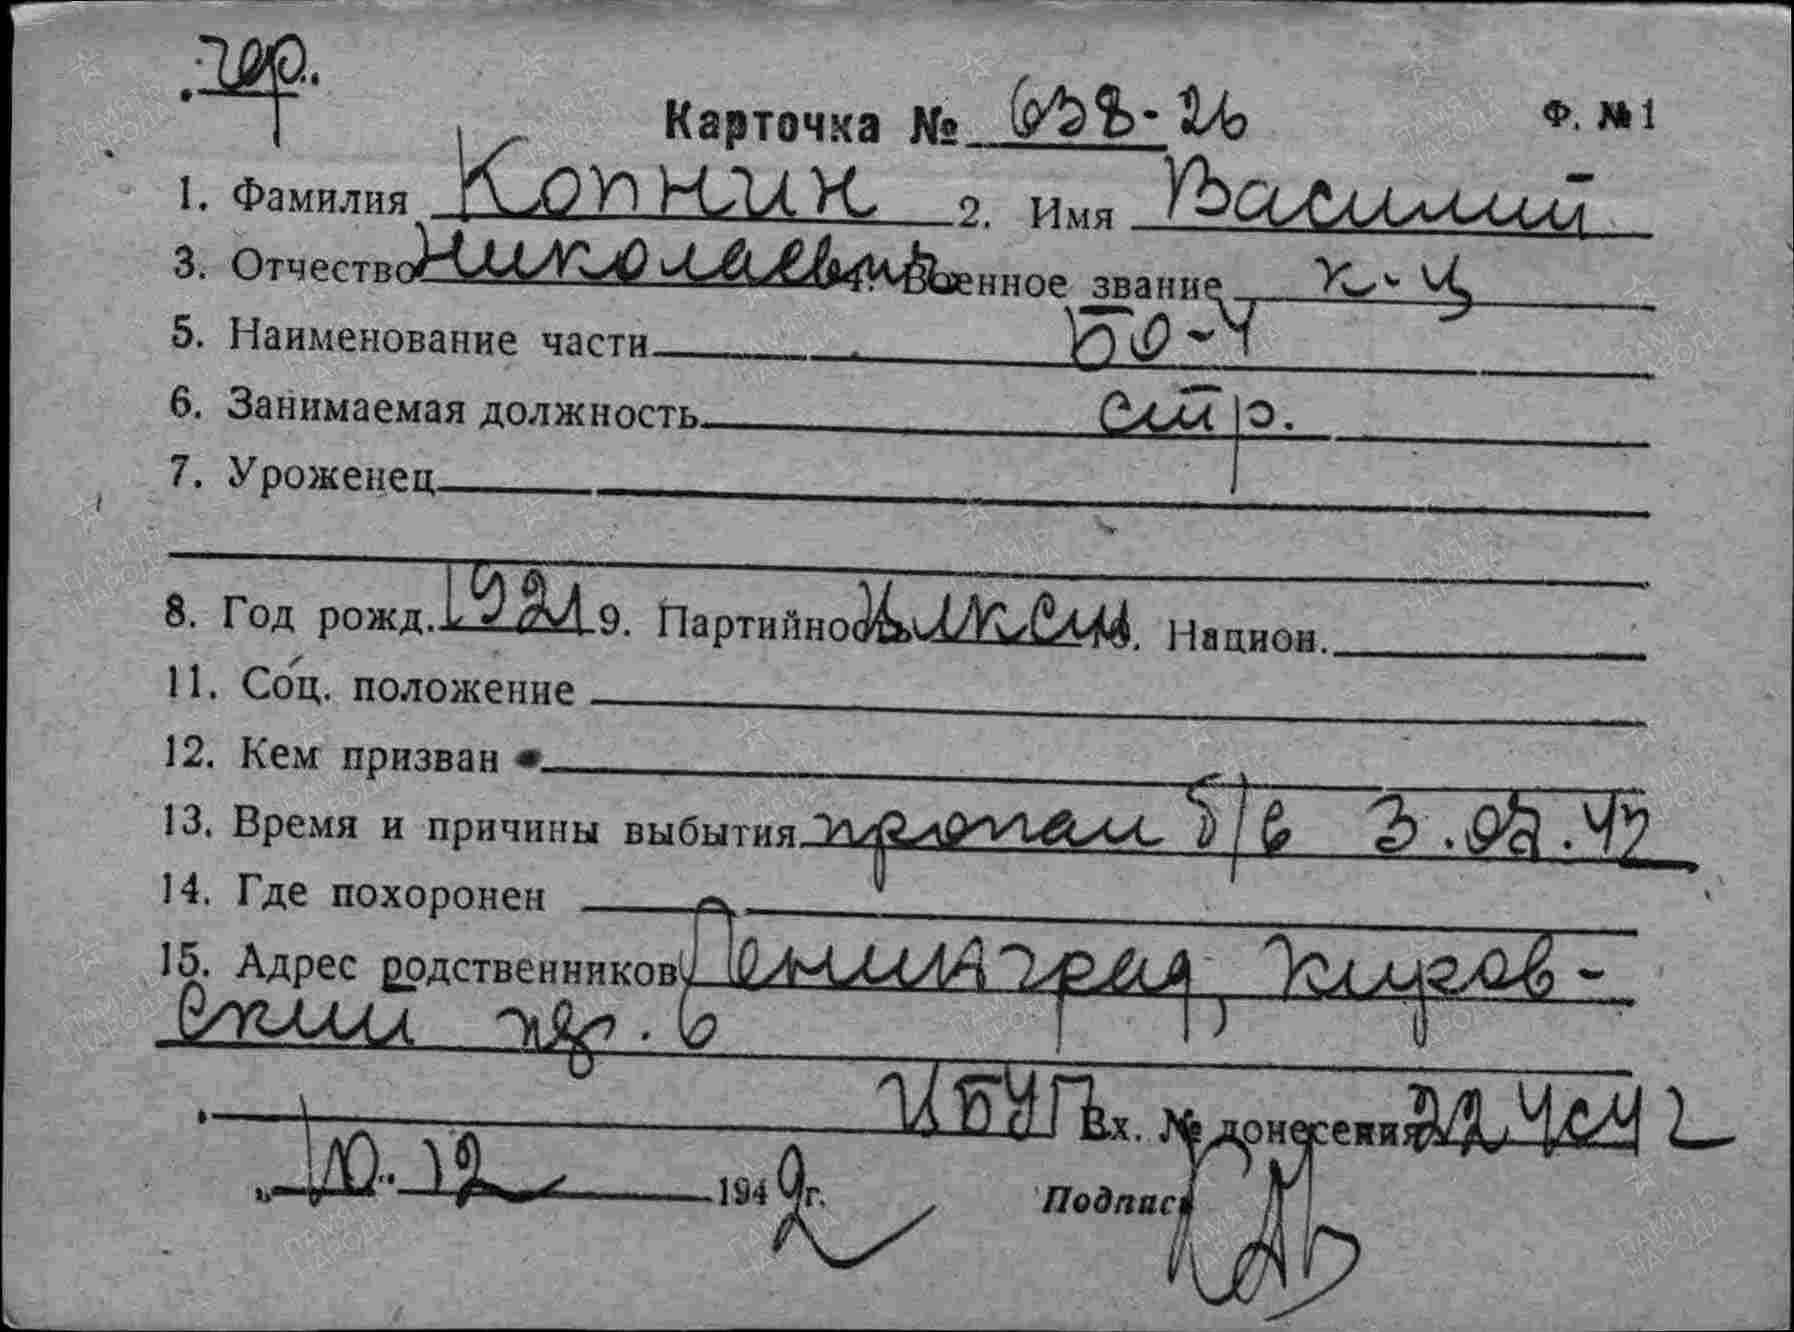 чф.
Карточка № 638-26 Ф. №1
1. Фамилия Копнин 2. Имя Василий
3. Отчество Николаевич 4. Военное звание к-ц
5. Наименование части БО-4
6. Занимаемая должность стр.
7. Уроженец
8. Год рожд. 1921 9. Партийность чл. 10. Национ.
11. Соц. положение
12. Кем призван
13. Время и причины выбытия пропал б/в 3.02.42
14. Где похоронен
15. Адрес родственников Ленинград,
пер. 6
Вх. № донесения
„10.12 1942 г. Подпись